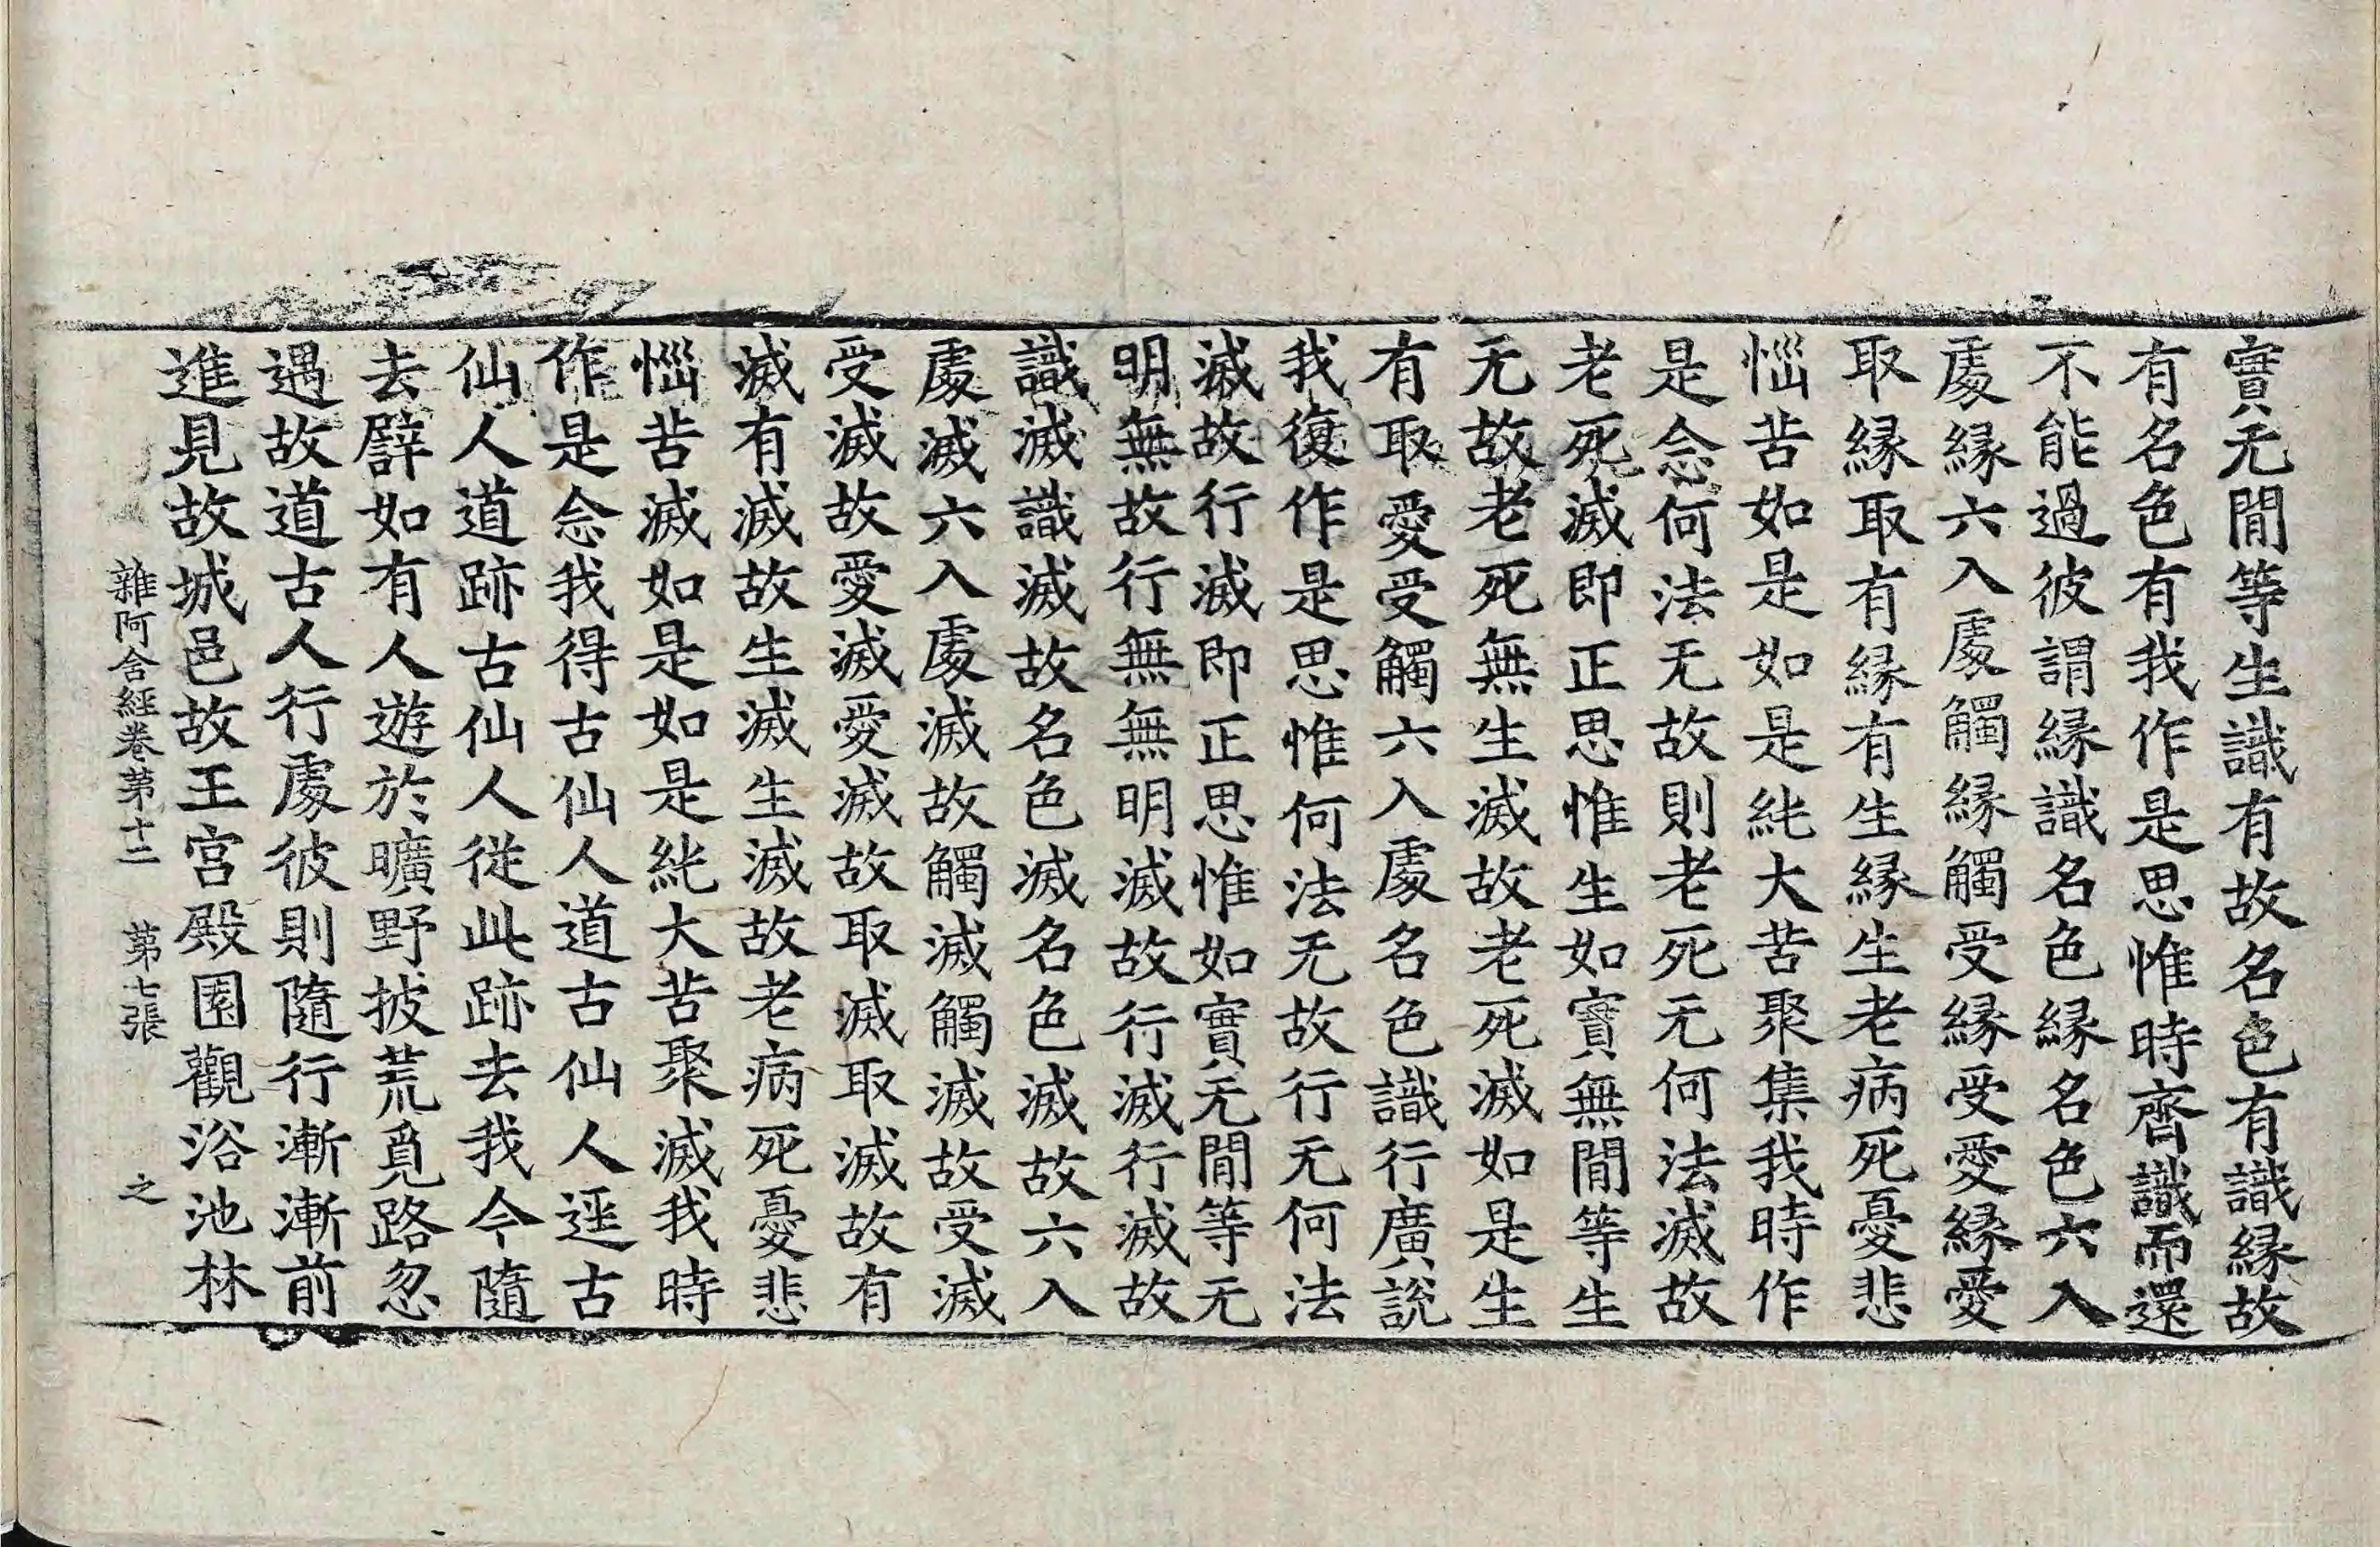 實无閒等生識有故名色有識縁故
有名色有我作是思惟時齊識而還
不能過彼謂縁識名色縁名色六入
處縁六入處觸縁觸受縁受愛縁愛
取縁取有縁有生縁生老病死憂悲
惱苦如是如是純大苦聚集我時作
是念何法无故則老死无何法滅故
老死滅即正思惟生如實無閒等生
无故老死無生滅故老死滅如是生
有取愛受觸六入處名色識行廣說
我復作是思惟何法无故行无何法
滅故行滅即正思惟如實无閒等无
明無故行無無明滅故行滅行滅故
識滅識滅故名色滅名色滅故六入
處滅六入處滅故觸滅觸滅故受滅
受滅故愛滅愛滅故取滅取滅故有
滅有滅故生滅生滅故老病死憂悲
惱苦滅如是如是純大苦聚滅我時
作是念我得古仙人道古仙人逕古
仙人道跡古仙人從此跡去我今隨
去譬如有人遊於曠野披荒覓路忽
遇故道古人行處彼則隨行漸漸前
進見故城邑故王宮殿園觀浴池林
雜阿含經卷第十二 第七張 之